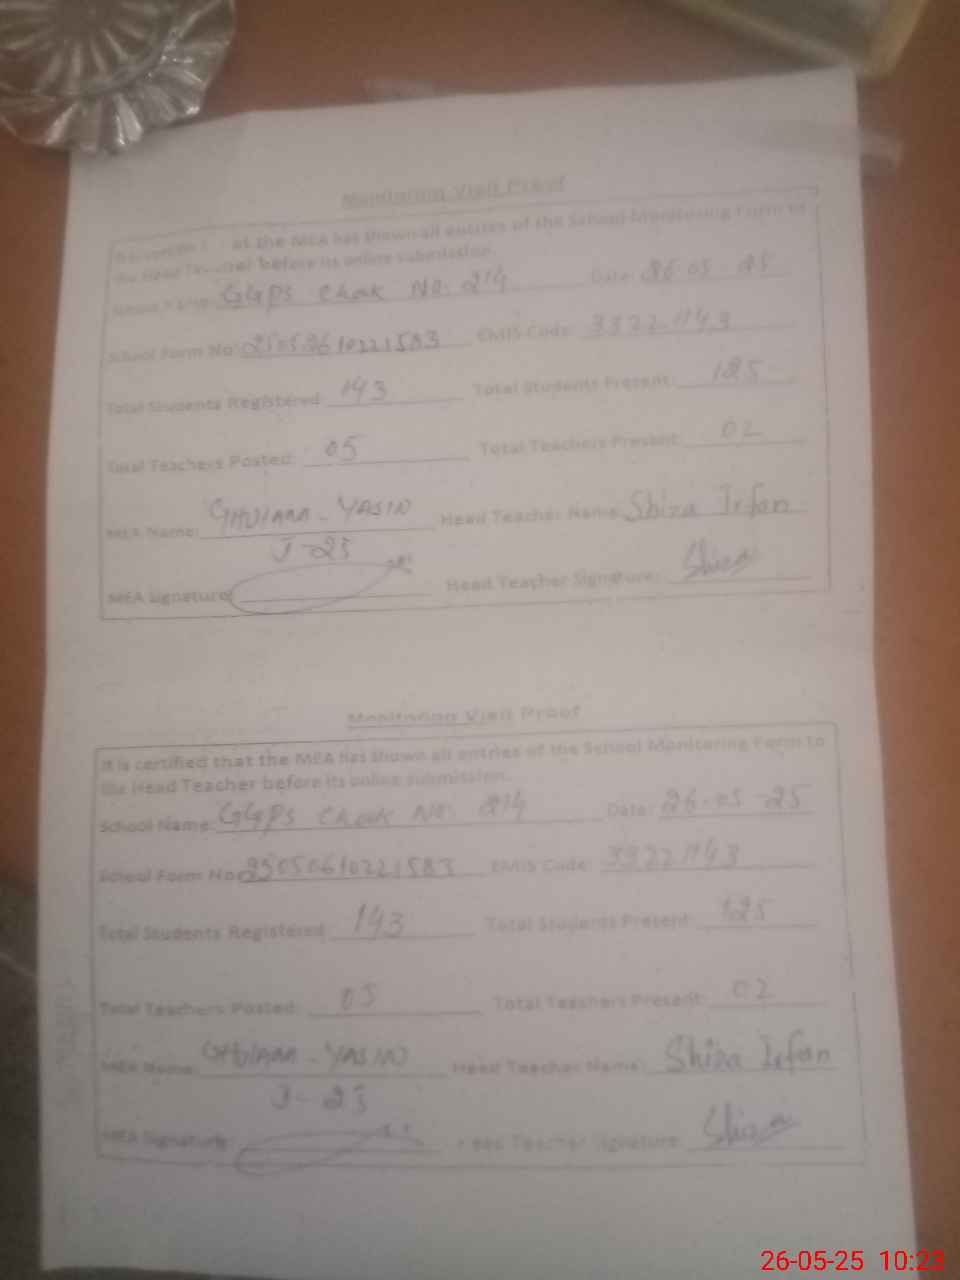 Monitoring Visit Proof
at the MEA has shown all entries of the School Monitoring Form to
the Head Teacher before its online submission.
School Name: GGPS Chak No: 214 Date: 26-05 25
School Form No: EMIS Code:
Total Students Registered: 143 Total Students Present: 125
Total Teachers Posted: 05 Total Teachers Present: 02
MEA Name: GHULAM - YASIN Head Teacher Name: Shiza Irfan
J-25
MEA Signature: Head Teacher Signature: Shiza
Monitoring Visit Proof
It is certified that the MEA has shown all entries of the School Monitoring Form to
the Head Teacher before its online submission.
School Name: GGPS Chak No: 214 Date: 26-05-25
School Form No: EMIS Code:
Total Students Registered: 143 Total Students Present: 125
Total Teachers Posted: 05 Total Teachers Present: 02
MEA Name: GHULAM - YASIN Head Teacher Name: Shiza Irfan
J-25
MEA Signature: Head Teacher Signature: Shiza
26-05-25 10:23